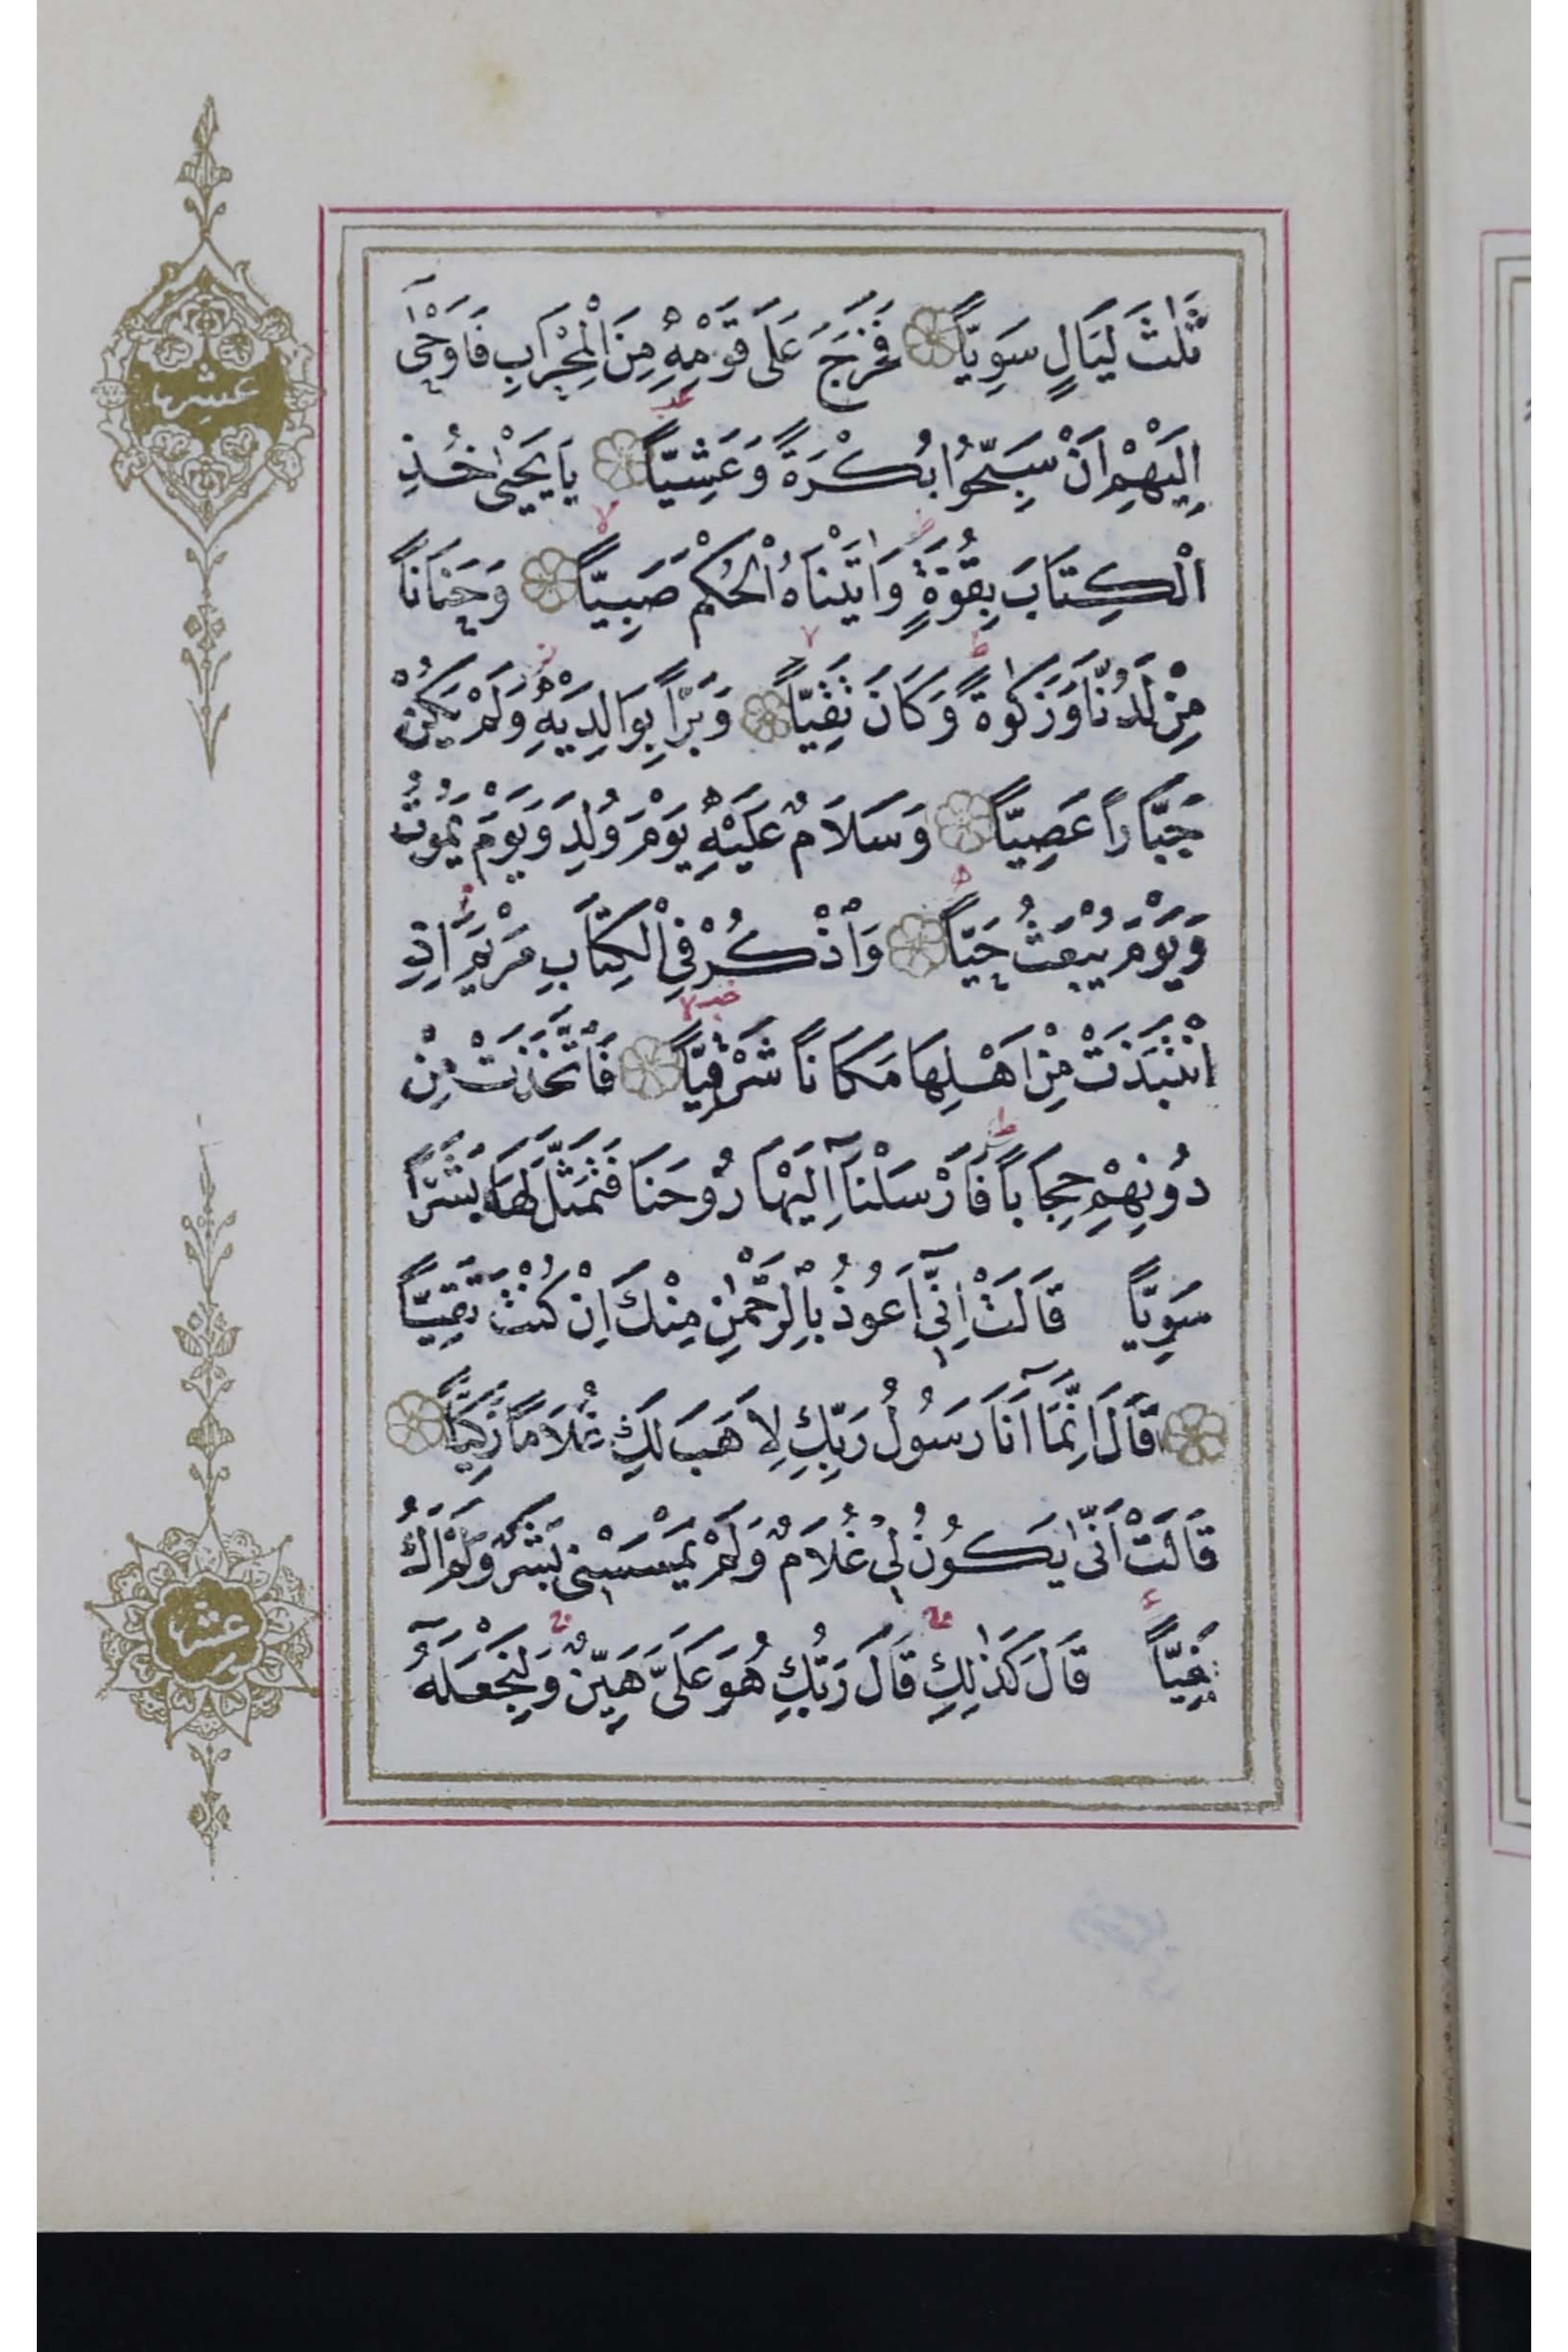 ثَلٰثَ لَيَالٍ سَوِيًّا فَخَرَجَ عَلٰى قَوْمِهٖ مِنَ الْمِحْرَابِ فَاَوْحٰٓى
اِلَيْهِمْ اَنْ سَبِّحُوا بُكْرَةً وَعَشِيًّا يَا يَحْيٰى خُذِ
الْكِتَابَ بِقُوَّةٍ وَاٰتَيْنَاهُ الْحُكْمَ صَبِيًّا وَحَنَانًا
مِنْ لَدُنَّا وَزَكٰوةً وَكَانَ تَقِيًّا وَبَرًّا بِوَالِدَيْهِ وَلَمْ يَكُنْ
جَبَّارًا عَصِيًّا وَسَلَامٌ عَلَيْهِ يَوْمَ وُلِدَ وَيَوْمَ يَمُوتُ
وَيَوْمَ يُبْعَثُ حَيًّا وَاذْكُرْ فِي الْكِتَابِ مَرْيَمَ اِذِ
انْتَبَذَتْ مِنْ اَهْلِهَا مَكَانًا شَرْقِيًّا فَاتَّخَذَتْ مِنْ
دُونِهِمْ حِجَابًا فَاَرْسَلْنَٓا اِلَيْهَا رُوحَنَا فَتَمَثَّلَ لَهَا بَشَرًا
سَوِيًّا قَالَتْ اِنّٓى اَعُوذُ بِالرَّحْمٰنِ مِنْكَ اِنْ كُنْتَ تَقِيًّا
قَالَ اِنَّمَٓا اَنَا رَسُولُ رَبِّكِ لِاَهَبَ لَكِ غُلَامًا زَكِيًّا
قَالَتْ اَنّٰى يَكُونُ لِى غُلَامٌ وَلَمْ يَمْسَسْنِى بَشَرٌ وَلَمْ اَكُ
بَغِيًّا قَالَ كَذٰلِكِ قَالَ رَبُّكِ هُوَ عَلَىَّ هَيِّنٌ وَلِنَجْعَلَهُٓ
عشرها
عشرها